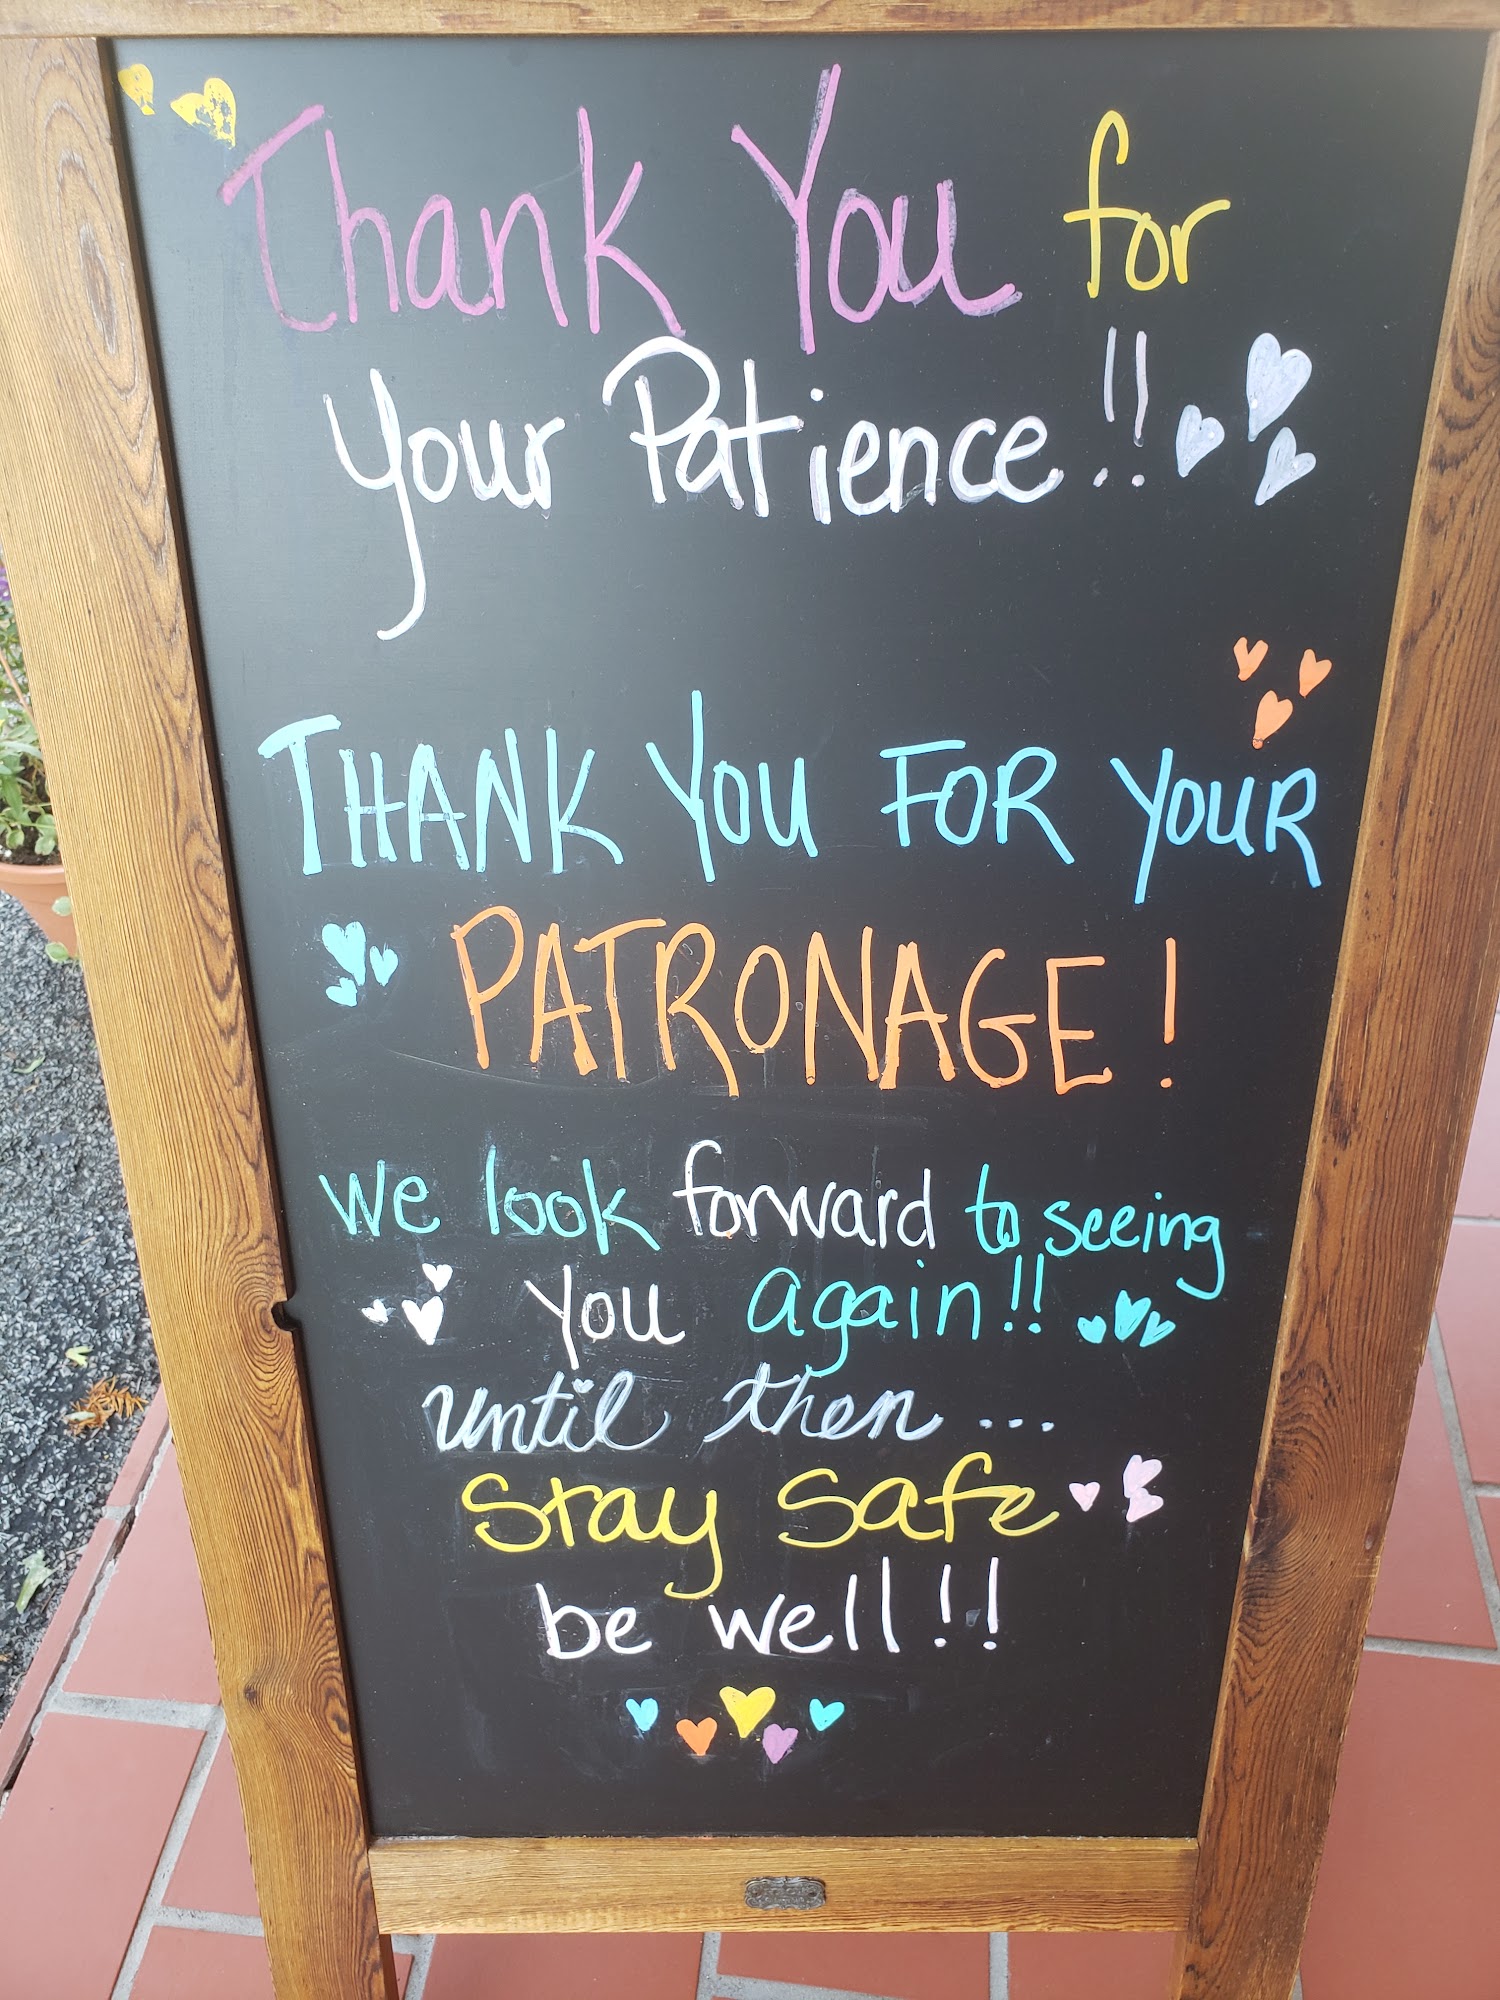 Thank You for
your Patience!!
THANK YOU FOR YOUR
PATRONAGE!
We look forward to seeing
you again!!
until then...
Stay Safe
be well!!